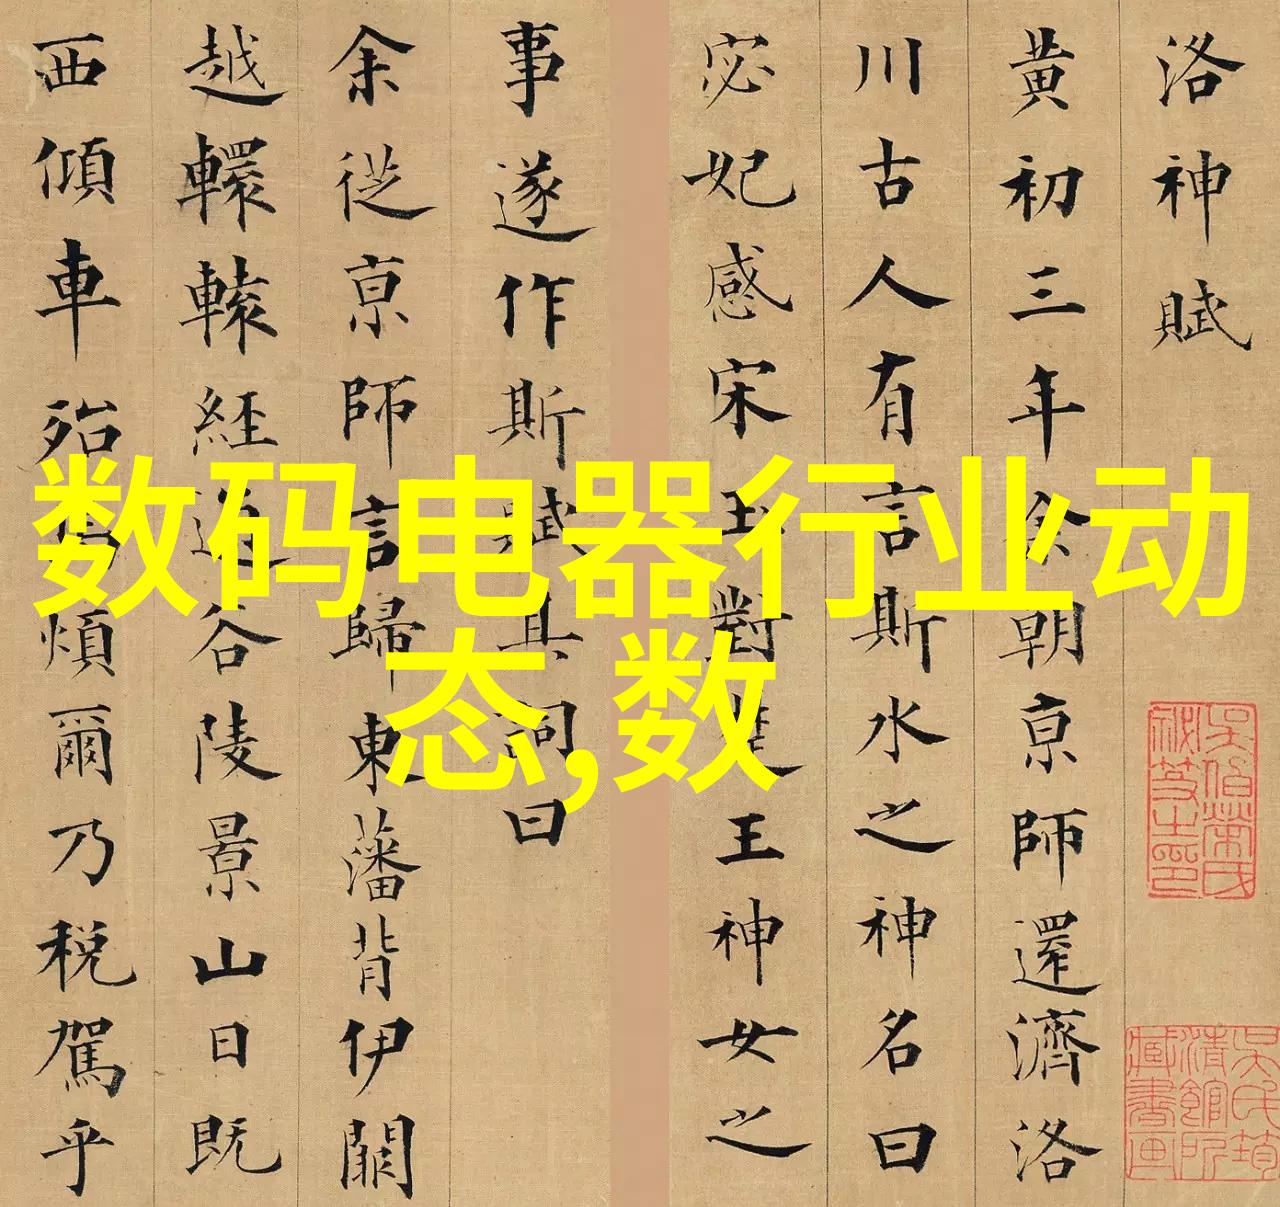 洛神賦
黃初三年余朝京師還濟洛
川古人有言斯水之神名曰
宓妃感宋玉對楚王神女之
事遂作斯賦其詞曰
余從京師言歸東藩背伊闕
越轘轅經通谷陵景山日既
西傾車殆馬煩爾乃稅駕乎
数码电器行业动
态,数